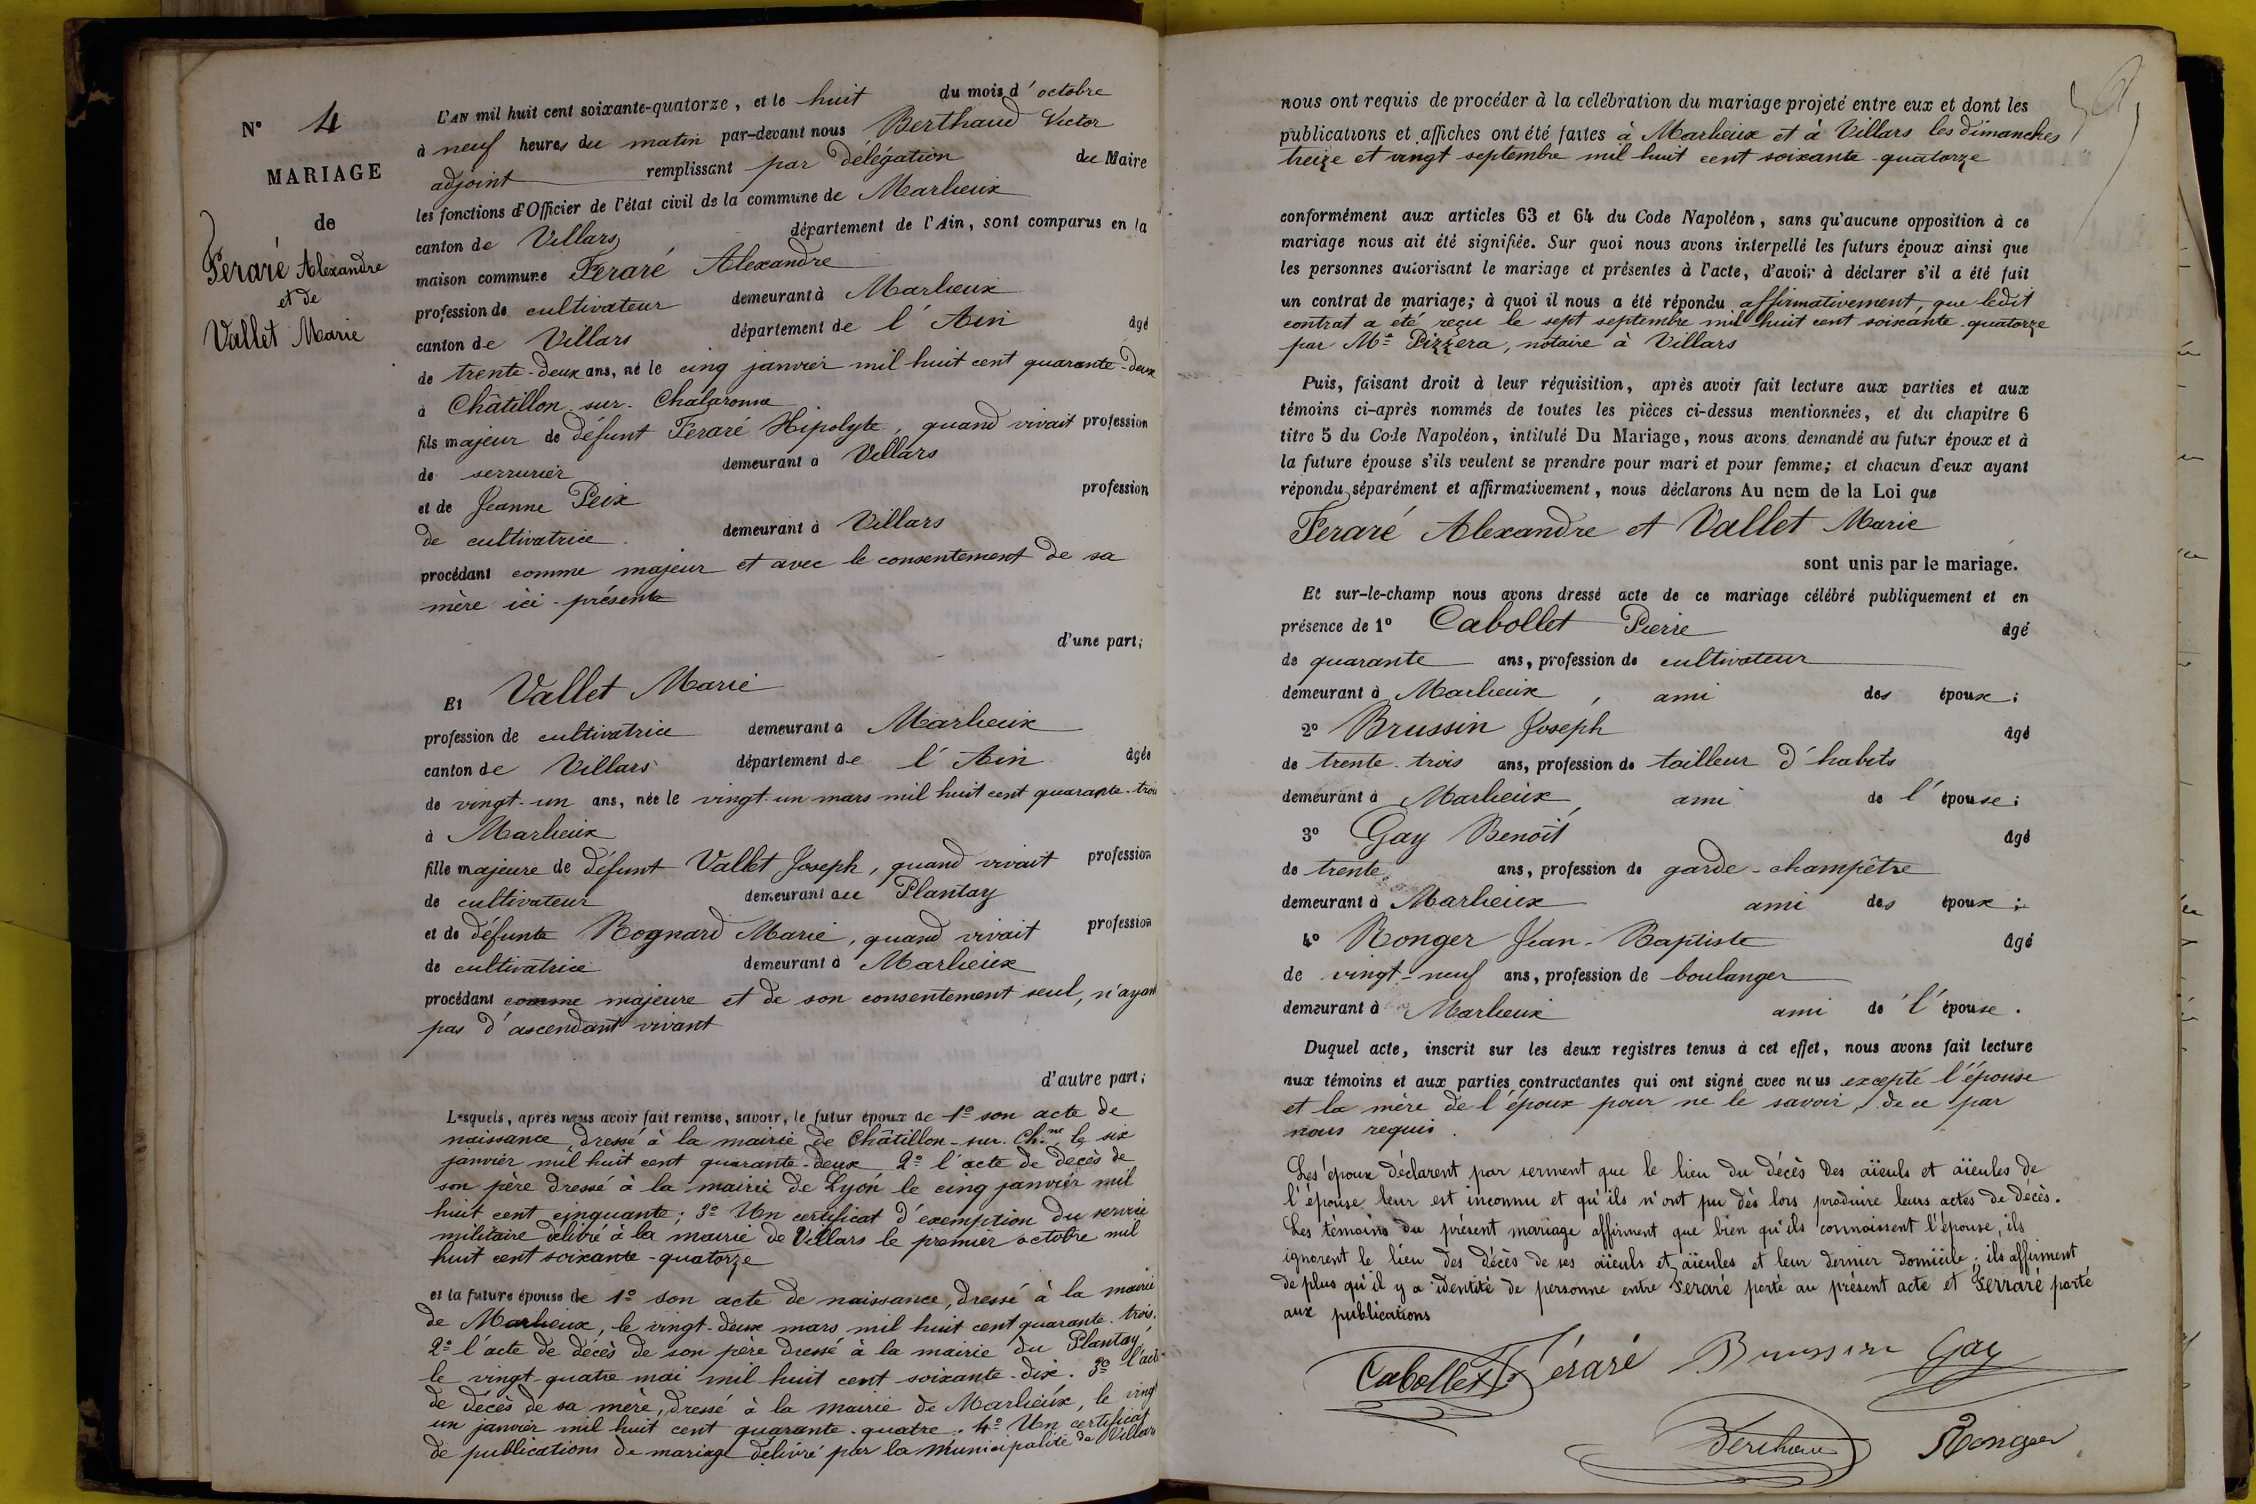 N° 4
MARIAGE
de
Feraré Alexandre
et de
Vallet Marie
L'AN mil huit cent soixante-quatorze, et le huit du mois d'octobre
à neuf heures du matin par-devant nous Berthaud Victor
adjoint remplissant par délégation du Maire
les fonctions d'Officier de l'état civil de la commune de Marlieux
canton de Villars département de l'Ain, sont comparus en la
maison commune Feraré Alexandre
profession de cultivateur demeurant à Marlieux
canton de Villars département de l'Ain âgé
de trente-deux ans, né le cinq janvier mil huit cent quarante-deux
à Châtillon-sur-Chalaronne
fils majeur de défunt Feraré Hipolyte, quand vivait profession
de serrurier demeurant à Villars
et de Jeanne Peix profession
de cultivatrice demeurant à Villars
procédant comme majeur et avec le consentement de sa
mère ici présente
d'une part;
Et Vallet Marie
profession de cultivatrice demeurant à Marlieux
canton de Villars département de l'Ain âgée
de vingt-un ans, née le vingt-un mars mil huit cent quarante-trois
à Marlieux
fille majeure de défunt Vallet Joseph, quand vivait profession
de cultivateur demeurant au Plantay
et de défunte Rognard Marie, quand vivait profession
de cultivatrice demeurant à Marlieux
procédant comme majeure et de son consentement seul, n'ayant
pas d'ascendant vivant
d'autre part;
Lesquels, après nous avoir fait remise, savoir, le futur époux de 1° son acte de
naissance, dressé à la mairie de Châtillon-sur-Ch.ne le six
janvier mil huit cent quarante-deux 2° l'acte de décès de
son père dressé à la mairie de Lyon le cinq janvier mil
huit cent cinquante; 3° Un certificat d'exemption du service
militaire délivré à la mairie de Villars le premier octobre mil
huit cent soixante-quatorze
et la future épouse de 1° son acte de naissance, dressé à la mairie
de Marlieux, le vingt-deux mars mil huit cent quarante-trois.
2° l'acte de décès de son père dressé à la mairie du Plantay
le vingt-quatre mai mil huit cent soixante-dix. 3° l'acte
de décès de sa mère, dressé à la mairie de Marlieux, le vingt
un janvier mil huit cent quarante-quatre. 4° Un certificat
de publications de mariage délivré par la Municipalité de Villars
nous ont requis de procéder à la célébration du mariage projeté entre eux et dont les
publications et affiches ont été faites à Marlieux et à Villars les dimanches
treize et vingt septembre mil huit cent soixante-quatorze
conformément aux articles 63 et 64 du Code Napoléon, sans qu'aucune opposition à ce
mariage nous ait été signifiée. Sur quoi nous avons interpellé les futurs époux ainsi que
les personnes autorisant le mariage et présentes à l'acte, d'avoir à déclarer s'il a été fait
un contrat de mariage; à quoi il nous a été répondu affirmativement, que ledit
contrat a été reçu le sept septembre mil huit cent soixante-quatorze
par Me Pizzera, notaire à Villars
Puis, faisant droit à leur réquisition, après avoir fait lecture aux parties et aux
témoins ci-après nommés de toutes les pièces ci-dessus mentionnées, et du chapitre 6
titre 5 du Code Napoléon, intitulé Du Mariage, nous avons demandé au futur époux et à
la future épouse s'ils veulent se prendre pour mari et pour femme; et chacun d'eux ayant
répondu séparément et affirmativement, nous déclarons Au nom de la Loi que
Feraré Alexandre et Vallet Marie
sont unis par le mariage.
Et sur-le-champ nous avons dressé acte de ce mariage célébré publiquement et en
présence de 1° Cabollet Pierre âgé
de quarante ans, profession de cultivateur
demeurant à Marlieux, ami des époux;
2° Brussin Joseph âgé
de trente-trois ans, profession de tailleur d'habits
demeurant à Marlieux, ami de l'épouse;
3° Gay Benoît âgé
de trente ans, profession de garde-champêtre
demeurant à Marlieux ami des époux;
4° Ronger Jean-Baptiste âgé
de vingt-neuf ans, profession de boulanger
demeurant à Marlieux ami de l'épouse.
Duquel acte, inscrit sur les deux registres tenus à cet effet, nous avons fait lecture
aux témoins et aux parties contractantes qui ont signé avec nous excepté l'épouse
et la mère de l'époux pour ne le savoir, de ce par
nous requis.
Les époux déclarent par serment que le lieu du décès des aïeuls et aïeules de
l'épouse leur est inconnu et qu'ils n'ont pu dès lors produire leurs actes de décès.
Les témoins du présent mariage affirment que bien qu'ils connaissent l'épouse, ils
ignorent le lieu des décès de ses aïeuls et aïeules et leur dernier domicile; ils affirment
de plus qu'il y a identité de personne entre Feraré porté au présent acte et Ferraré porté
aux publications
Cabollet Féraré Brussin Gay
Berthaud Ronger